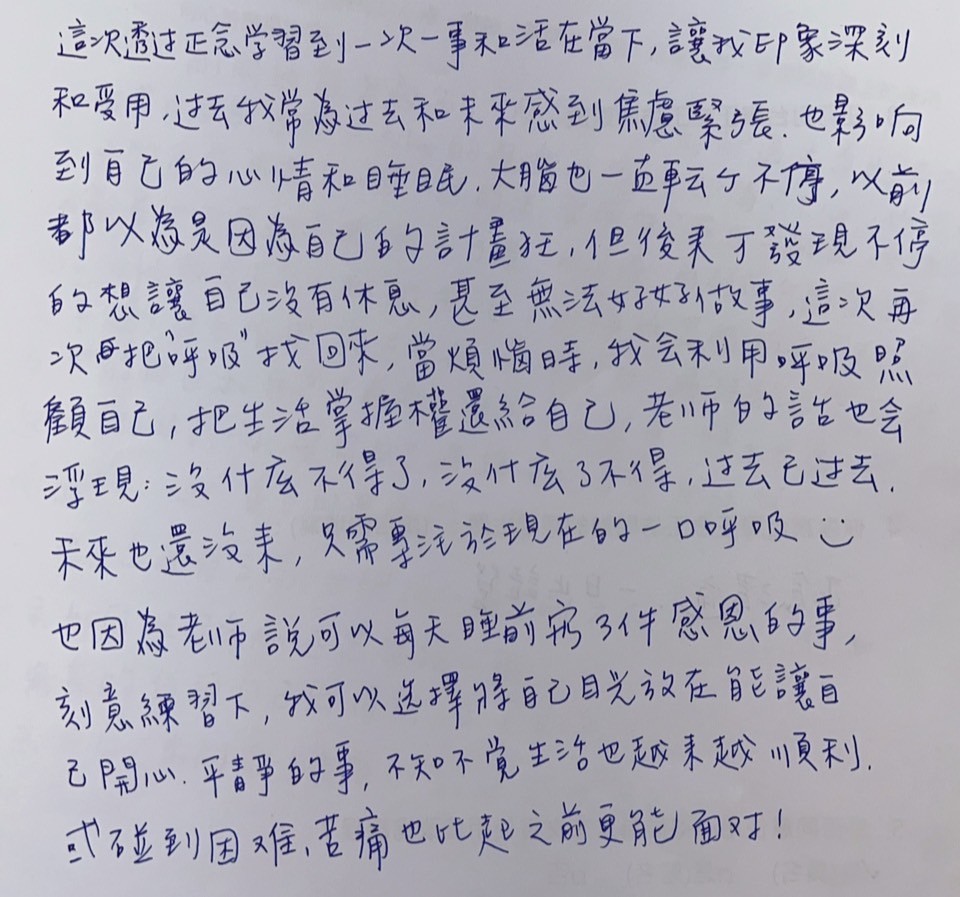 這次透过正念学習到一次一事和活在當下，讓我印象深刻
和受用，过去我常為过去和未來感到焦慮緊張、也影响
到自己的心情和睡眠，大腦也一直転个不停，以前
都以為是因為自己的計畫狂，但後来才發現不停
的想讓自己没有休息，甚至無法好好做事，這次再
次把"呼吸"找回來，當煩惱時，我会利用呼吸照
顧自己，把生活掌握權還給自己，老师的話也会
浮現：没什庅不得了，没什庅了不得，过去已过去、
未來也還没来，只需專注於現在的一口呼吸
也因為老师說可以每天睡前寫3件感恩的事，
刻意練習下，我可以选擇將自己目光放在能讓自
己開心、平静的事，不知不覚生活也越来越順利，
或碰到困难、苦痛也比起之前更能面对！